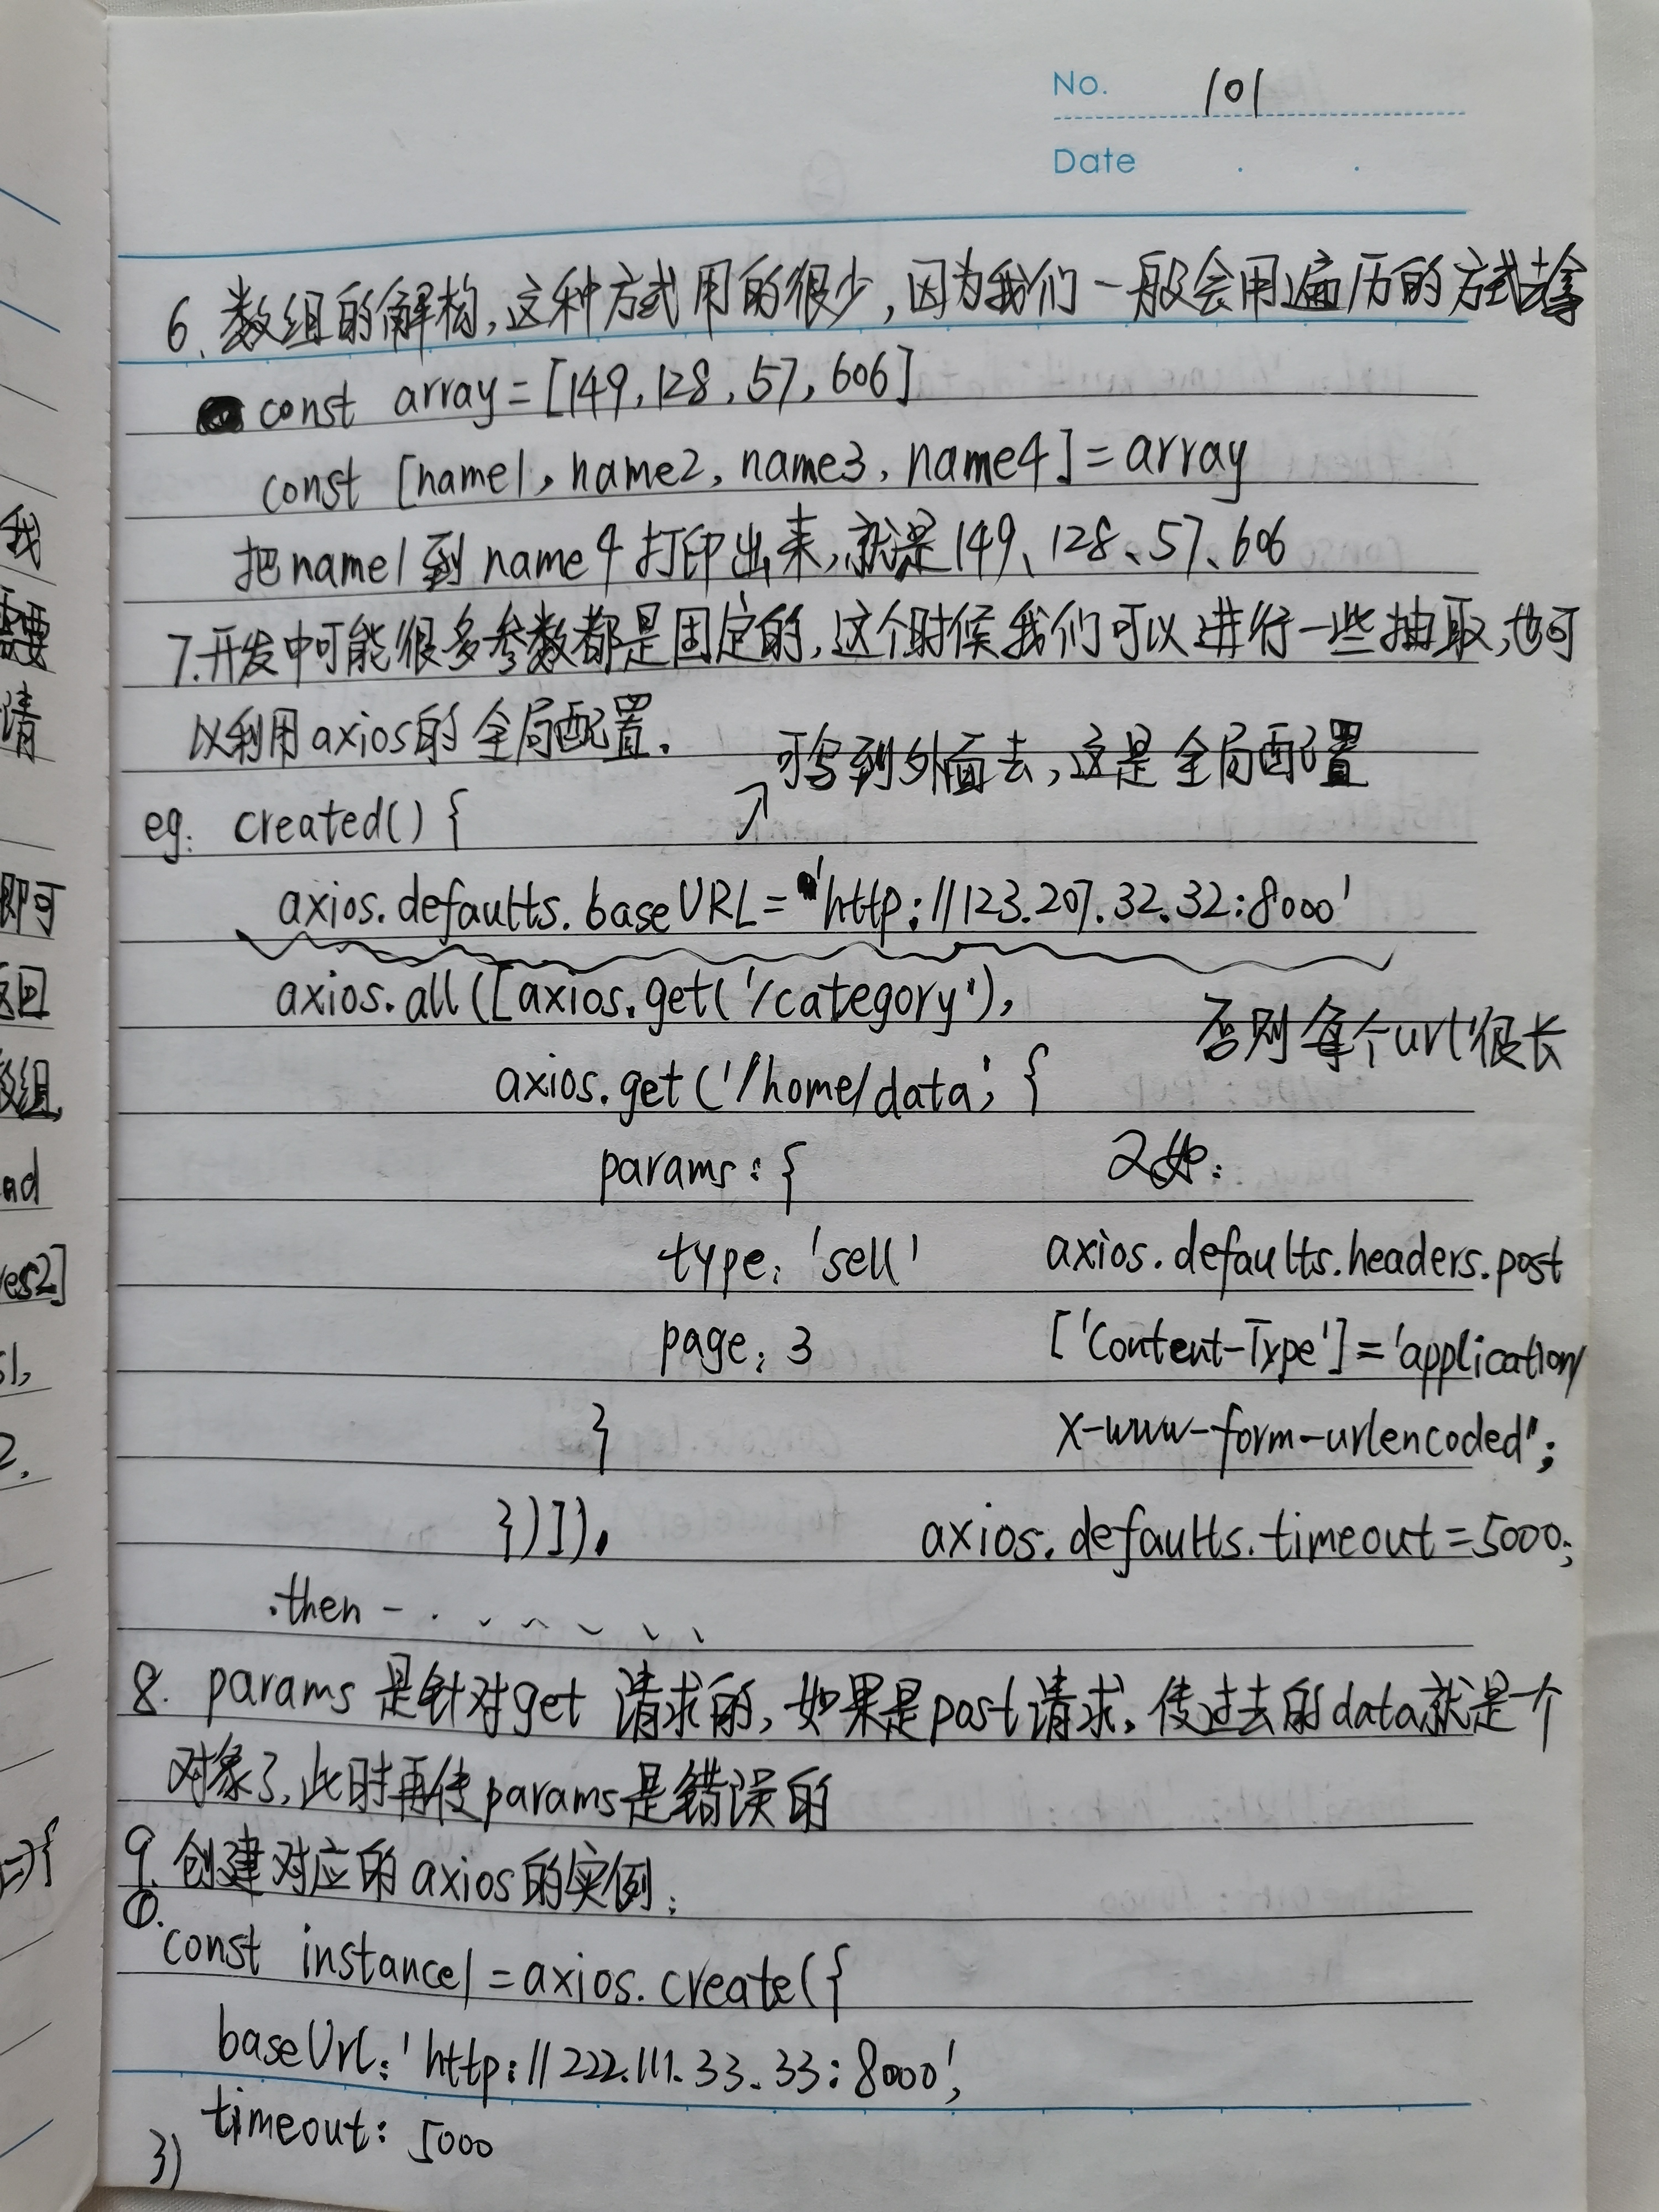 No. 101
Date . .
6、数组的解构,这种方式用的很少,因为我们一般会用遍历的方式去拿
const array=[149,128,57,606]
const [name1,name2,name3,name4]=array
把name1到name4打印出来,就是149、128、57、606
7.开发中可能很多参数都是固定的,这个时候我们可以进行一些抽取,也可
以利用axios的全局配置.
可写到外面去,这是全局配置
↗
eg: created(){
axios.defaults.baseURL='http://123.207.32.32:8000'
axios.all([axios.get('/category'),
否则每个url很长
axios.get('/home/data',{
params:{
又如:
type:'sell'
axios.defaults.headers.post
page:3
['Content-Type']='application/
}
x-www-form-urlencoded";
})]).
axios.defaults.timeout=5000;
.then ......
8. params是针对get请求的,如果是post请求,传过去的data就是一个
对象了,此时再传params是错误的
9.创建对应的axios的实例:
①.
const instance1=axios.create({
baseUrl:'http://222.111.33.33:8000',
timeout:5000
})
我
需要
请
即可
返回
数组,
and
res2]
s1,
2,
=>{